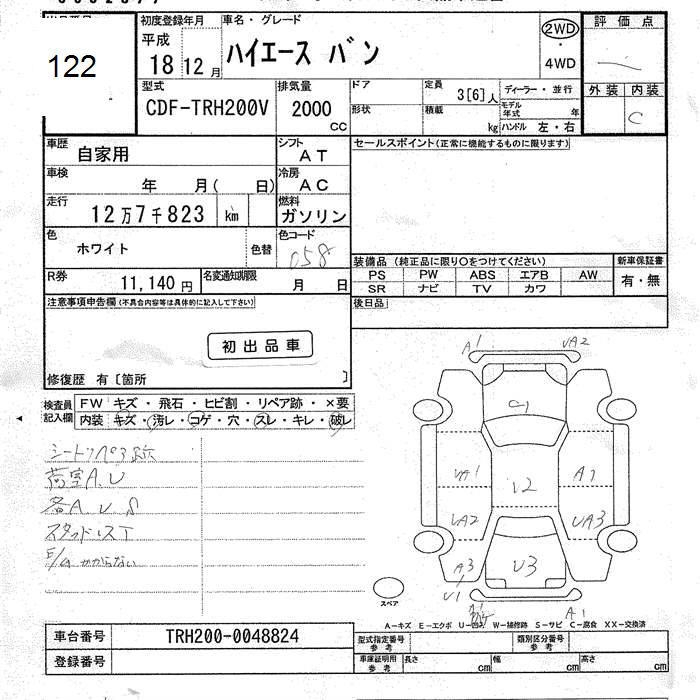 122
初度登録年月 車名・グレード 2WD 評価点
平成 ハイエース バン ・
18 12月 4WD
型式 排気量 ドア 定員 3[6]人 ディーラー・並行 外装 内装
CDF-TRH200V 2000 CC 形状 積載 kg モデル年式 年 C
ハンドル 左・右
車歴 自家用 シフト AT セールスポイント(正常に機能するものに限ります)
車検 年 月( 日) 冷房 AC
走行 12万7千823 km 燃料 ガソリン
色 ホワイト 色替 色コード 058
装備品(純正品に限り○をつけてください) 新車保証書
PS PW ABS エアB AW 有・無
R券 11,140円 名変通知期限 月 日 SR ナビ TV カワ
注意事項申告欄(不具合内容等は具体的に記入して下さい) 後日品
初出品車
修復歴 有〔箇所 〕
検査員記入欄 FW キズ・飛石・ヒビ割・リペア跡・×要
内装 キズ・汚レ・コゲ・穴・スレ・キレ・破レ
荷室A.U
スタッドレス
E/G かからない
A1 UA2
G1
UA1 A1
12
UA2 UA3
A3 U3
U1
A1
スペア
A-キズ E-エクボ U-凹ミ W-補修跡 S-サビ C-腐食 XX-交換済
車台番号 TRH200-0048824 型式指定番号参考 類別区分番号参考
登録番号 車庫証明用参考 長さ cm 幅 cm 高さ cm